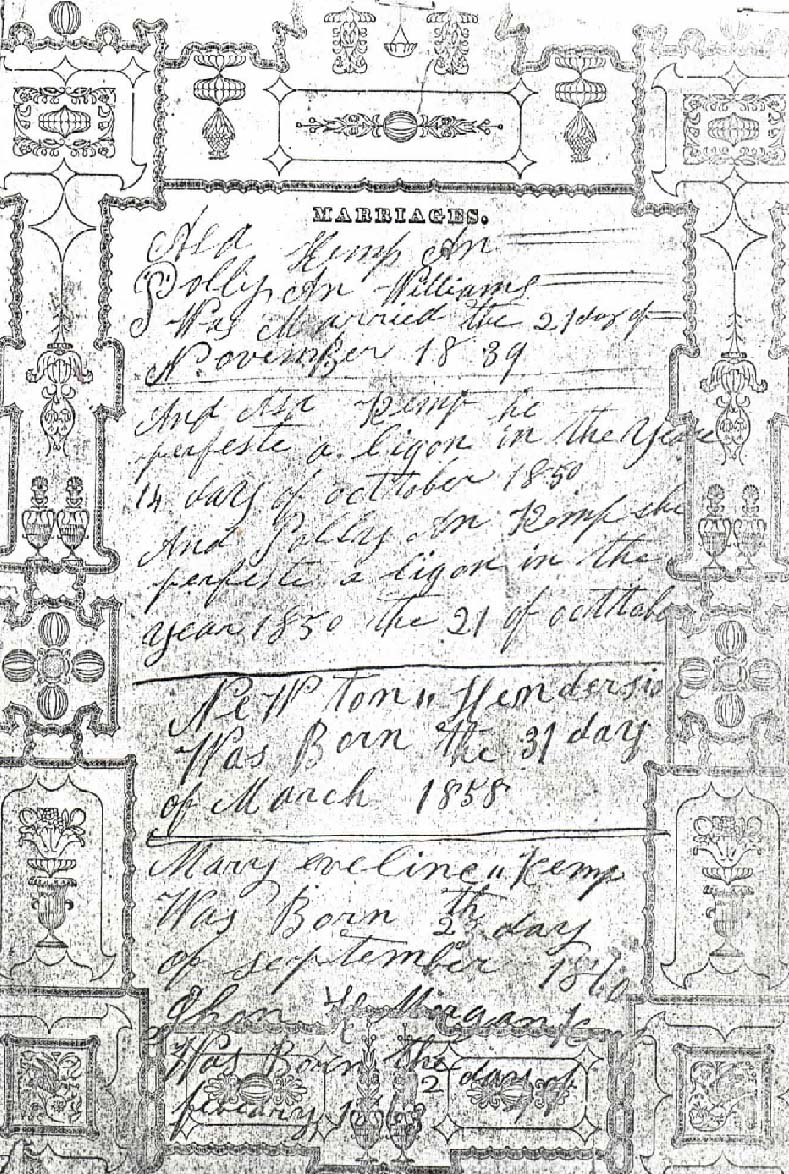 MARRIAGES.
Asa Kemp An
Polly An Williams
Was Married the 21 day of
November 1839
And Asa Kemp he
perfeste a ligon in the year
14 days of octtober 1850
And Polly An Kemp she
perfeste a ligon in the
year 1850 the 21 of octtobe
NeWton Hendersio
Was Born the 31 day
of March 1858
Mary eveline Kemp
Was Born 23 th day
of september
Morgan
Was Born the
2 day of
febuary